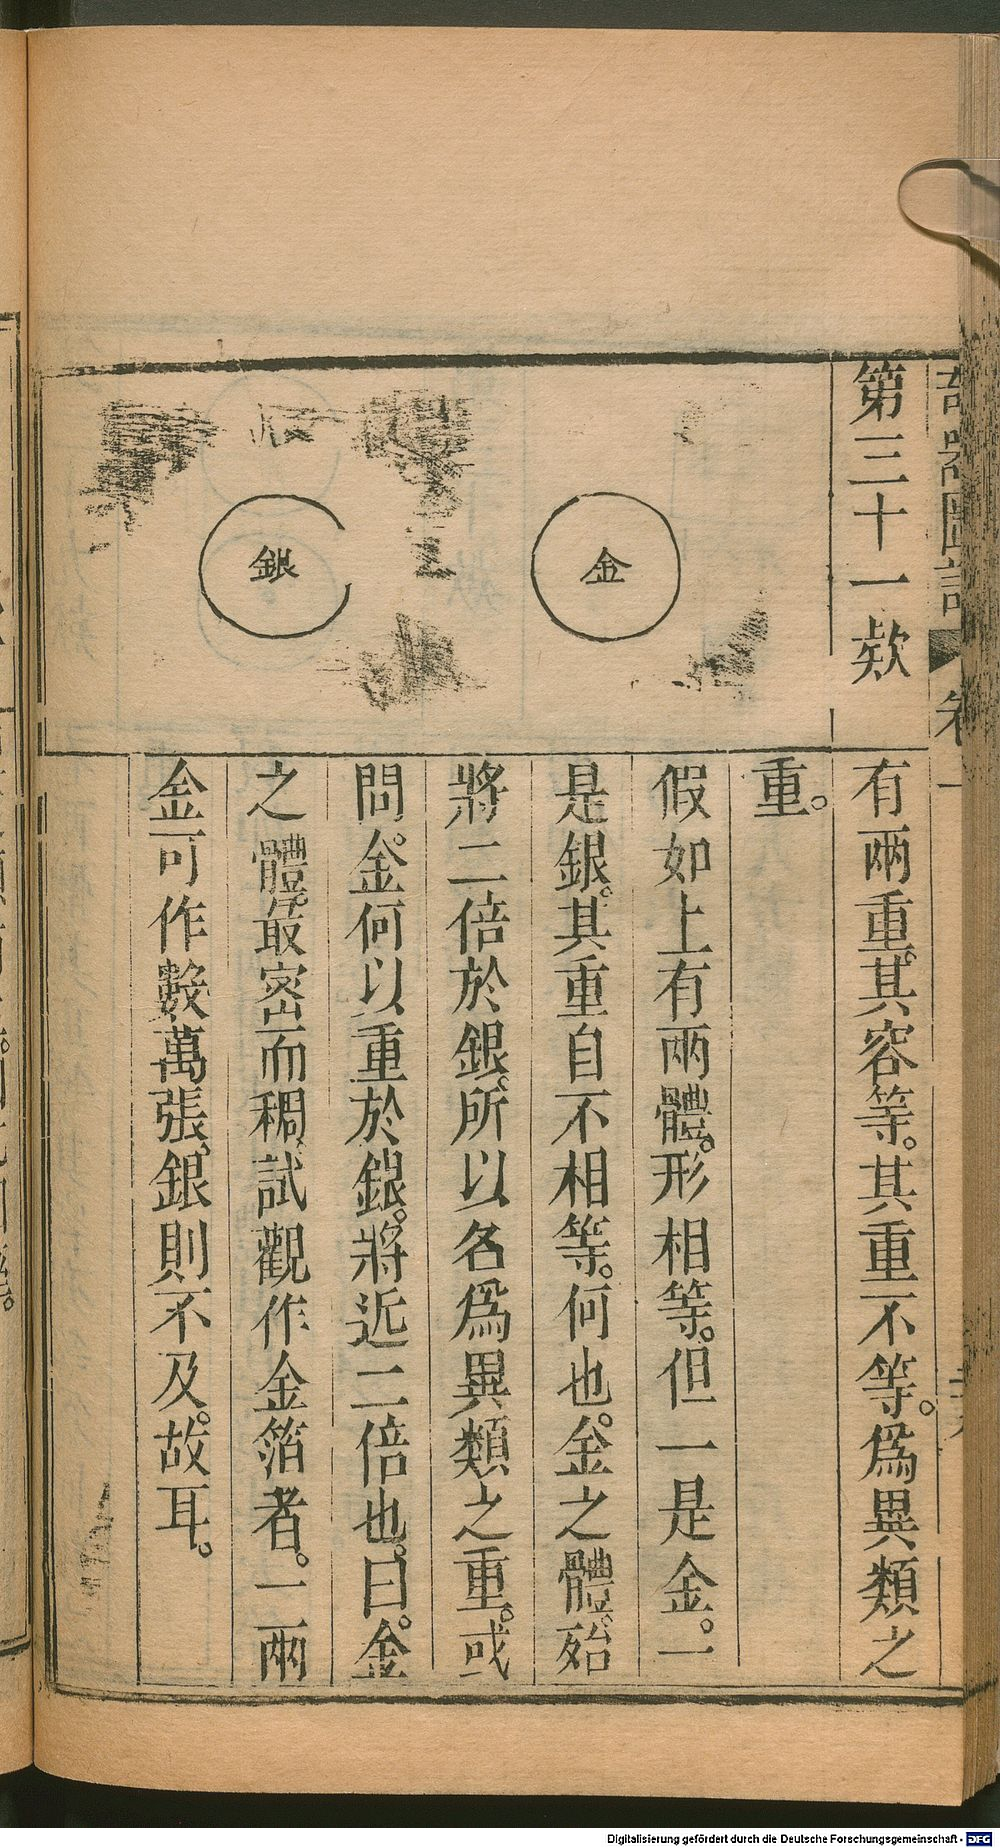 第三十一欵
有兩重。其容等。其重不等。爲異類之
重。
假如上有兩體。形相等。但一是金。一
是銀。其重自不相等。何也。金之體。殆
將二倍於銀。所以名爲異類之重。或
問。金何以重於銀。將近二倍也。曰。金
之體。最宻而稠。試觀作金箔者。一兩
金可作數萬張。銀則不及。故耳。
金
銀
Digitalisierung gefördert durch die Deutsche Forschungsgemeinschaft - DFG